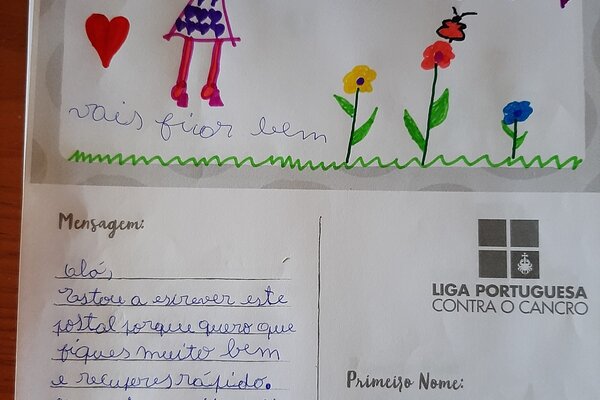 vais ficar bem
Mensagem:
olá,
Estou a escrever este
postal porque quero que
fiques muito bem
e recuperes rápido.
LIGA PORTUGUESA
CONTRA O CANCRO
Primeiro Nome: